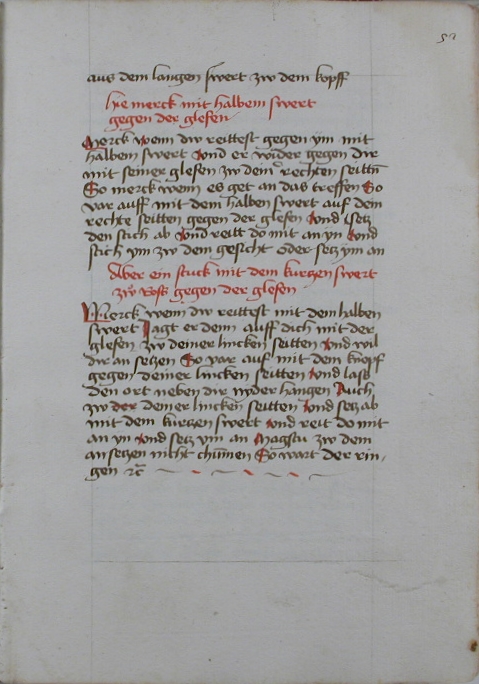 52
aus dem langen swert zw dem kopff
hye merck mit halbem swert
gegen der glefen
Merck wenn dw reittest gegen ym mit
halbem swert Und er wider gegen dir
mit seiner glefen zw deiner rechten seittn̄
So merck wenn es get an das treffen So
var auff mit dem halben swert auf dem
rechte seitten gegen der glefen Und setz
den stich ab Und reitt do mit an yn Und
stich ym zw dem gesicht oder setz ym an
Aber ein stuck mit dem kurtzen swert
zw Ross gegen der glefen
Merck wenn dw reittest mit dem halben
swert Jagt er denn auff dich mit der
glefen zw deiner lincken seitten Und wil
dir an setzen So var auf mit dem knopf
gegen deiner lincken seitten Und lass
den ort neben dir nyder hangen Auch
zw der deiner lincken seitten Und setz ab
mit dem kurtzen swert Und reit do mit
an yn Und setz ym an Magstu zw dem
an setzen nicht chumen So wart der rin,
gen ꝛc̄